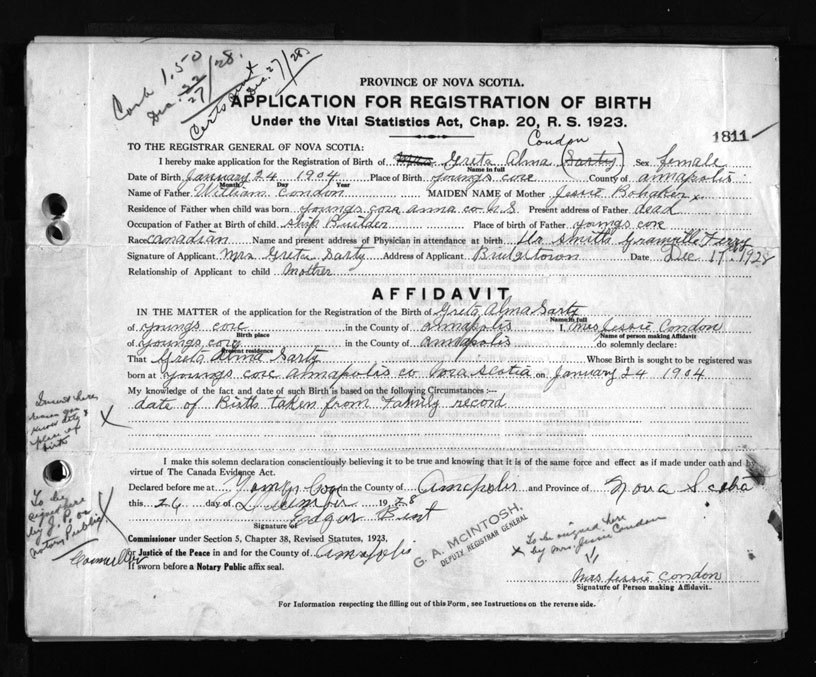 Cash 1.50
Dec. 27/28.
Dec. 27/28.
PROVINCE OF NOVA SCOTIA.
APPLICATION FOR REGISTRATION OF BIRTH
Under the Vital Statistics Act, Chap. 20, R. S. 1923.
1811
TO THE REGISTRAR GENERAL OF NOVA SCOTIA:
Condon
I hereby make application for the Registration of Birth of Greta Alma (Sarty) Sex Female
Name in full
Date of Birth January 24 1904 Place of Birth Youngs cove County of annapolis
Month Day Year
Name of Father William Condon MAIDEN NAME of Mother Jessie Bohaker
Residence of Father when child was born Youngs cove anna co N.S Present address of Father dead
Occupation of Father at Birth of child Ship Builder Place of birth of Father Youngs cove
Race Canadian Name and present address of Physician in attendance at birth Smith Granville Ferry
Signature of Applicant Mrs Greta Sarty Address of Applicant Bridgetown Date Dec 17. 1928
Relationship of Applicant to child Mother
AFFIDAVIT
IN THE MATTER of the application for the Registration of the Birth of Greta Alma Sarty
Name in full
of Youngs cove in the County of annapolis I, Mrs Jessie Condon
Birth place Name of person making Affidavit
of Youngs cove in the County of annapolis do solemnly declare:
Present residence
That Greta Alma Sarty Whose Birth is sought to be registered was
born at Youngs cove annapolis co Nova Scotia on January 24 1904
My knowledge of the fact and date of such Birth is based on the following Circumstances :—
date of Birth taken from Family record
Insert here
how you
know date &
place of
birth
X
I make this solemn declaration conscientiously believing it to be true and knowing that it is of the same force and effect as if made under oath and by
virtue of The Canada Evidence Act.
Declared before me at Youngs Cove in the County of Annapolis and Province of Nova Scotia
this 26 day of December 1928
Signature of Edgar Bent
To be
signed here
by J. P. or
Notary Public
X
Commissioner under Section 5, Chapter 38, Revised Statutes, 1923,
or Justice of the Peace in and for the County of Annapolis
If sworn before a Notary Public affix seal.
G. A. McINTOSH,
DEPUTY REGISTRAR GENERAL
X To be signed here
by Mrs Jessie Condon
Mrs Jessie Condon
Signature of Person making Affidavit.
For Information respecting the filling out of this Form, see Instructions on the reverse side.